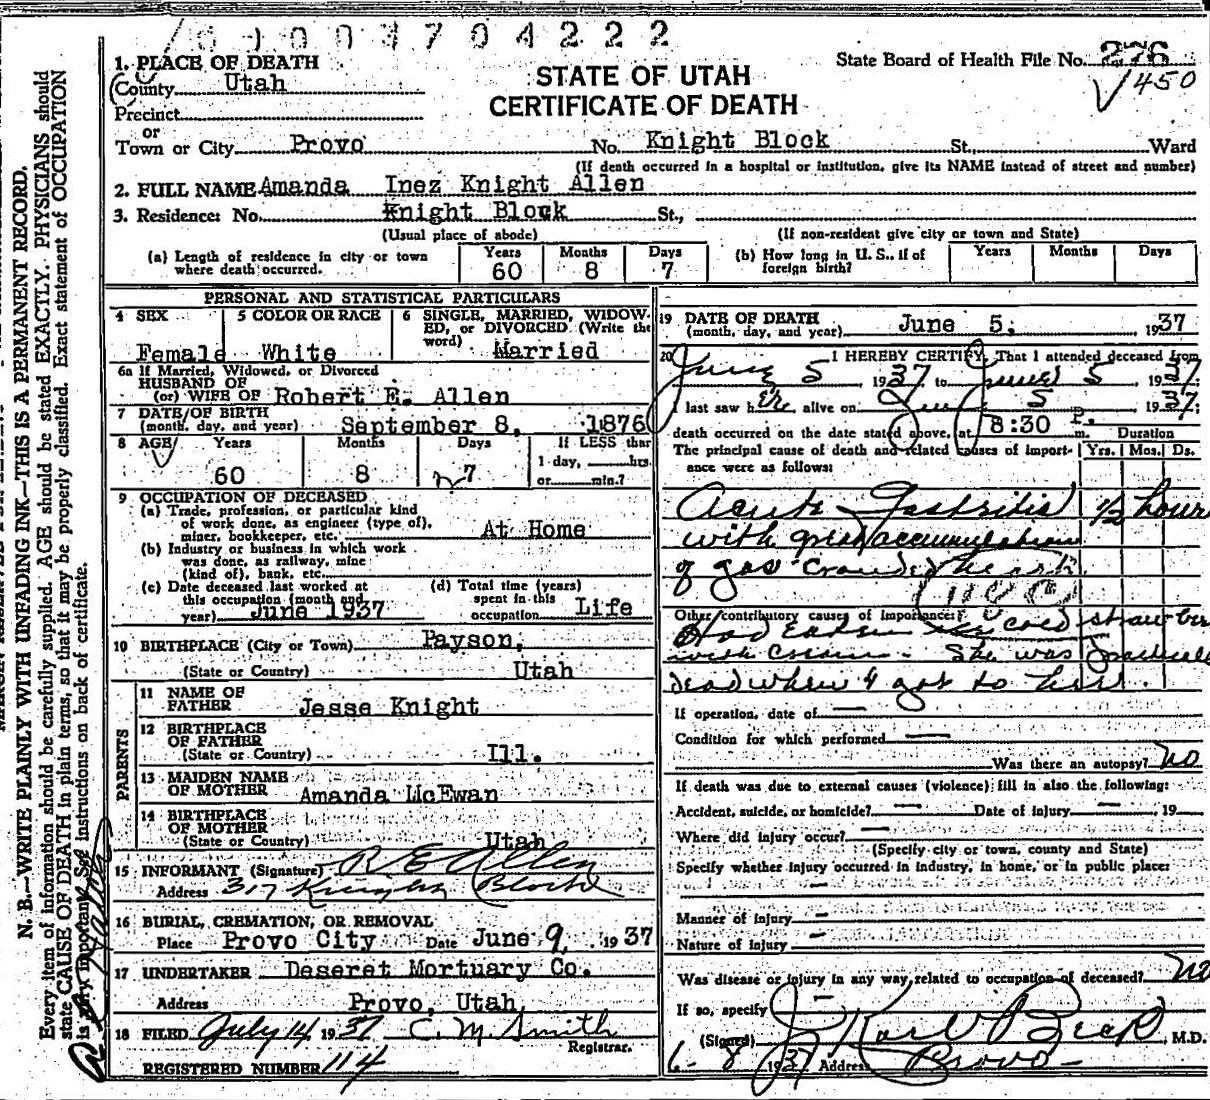 1003704222
1. PLACE OF DEATH
County Utah
Precinct
or
Town or City Provo
STATE OF UTAH
CERTIFICATE OF DEATH
State Board of Health File No. 276
450
No. Knight Block St., Ward
(If death occurred in a hospital or institution, give its NAME instead of street and number)
2. FULL NAME Amanda Inez Knight Allen
3. Residence: No. Knight Block St.,
(Usual place of abode) (If non-resident give city or town and State)
(a) Length of residence in city or town where death occurred. Years 60 Months 8 Days 7
(b) How long in U. S., if of foreign birth? Years Months Days
PERSONAL AND STATISTICAL PARTICULARS
4 SEX Female
5 COLOR OR RACE White
6 SINGLE, MARRIED, WIDOWED, or DIVORCED (Write the word) Married
6a If Married, Widowed, or Divorced
HUSBAND OF
(or) WIFE OF Robert E. Allen
7 DATE OF BIRTH
(month, day, and year) September 8, 1876
8 AGE Years 60 Months 8 Days 7 If LESS than 1 day, hrs. or min.?
9 OCCUPATION OF DECEASED
(a) Trade, profession, or particular kind
of work done, as engineer (type of),
miner, bookkeeper, etc. At Home
(b) Industry or business in which work
was done, as railway, mine
(kind of), bank, etc.
(c) Date deceased last worked at
this occupation (month and
year) June 1937
(d) Total time (years)
spent in this
occupation Life
10 BIRTHPLACE (City or Town) Payson,
(State or Country) Utah
PARENTS
11 NAME OF
FATHER Jesse Knight
12 BIRTHPLACE
OF FATHER
(State or Country) Ill.
13 MAIDEN NAME
OF MOTHER Amanda McEwan
14 BIRTHPLACE
OF MOTHER
(State or Country) Utah
15 INFORMANT (Signature) R E Allen
Address 317 Knight Block
16 BURIAL, CREMATION, OR REMOVAL
Place Provo City Date June 9, 1937
17 UNDERTAKER Deseret Mortuary Co.
Address Provo, Utah
18 FILED July 14, 1937 C. M. Smith
Registrar.
REGISTERED NUMBER 114
19 DATE OF DEATH
(month, day, and year) June 5, 1937
20 I HEREBY CERTIFY, That I attended deceased from
June 5, 1937 to June 5, 1937
I last saw her alive on June 5 1937;
death occurred on the date stated above, at 8:30 P. m. Duration
The principal cause of death and related causes of importance were as follows: Yrs. Mos. Ds.
Acute Gastritis 1/2 hour
with great accumulation
of gas crowded heart.
Other contributory causes of importance:
Had Eaten ice cold strawber
with cream. She was practically
dead when I got to her.
If operation, date of
Condition for which performed
Was there an autopsy? No
If death was due to external causes (violence) fill in also the following:
Accident, suicide, or homicide? Date of injury , 19
Where did injury occur?
(Specify city or town, county and State)
Specify whether injury occurred in industry, in home, or in public place:
Manner of injury
Nature of injury
Was disease or injury in any way related to occupation of deceased? No
If so, specify
(Signed) J Karl Beck, M.D.
6-8 1937 Address Provo
N. B.—WRITE PLAINLY WITH UNFADING INK—THIS IS A PERMANENT RECORD.
Every item of information should be carefully supplied. AGE should be stated EXACTLY. PHYSICIANS should
state CAUSE OF DEATH in plain terms, so that it may be properly classified. Exact statement of OCCUPATION
is very important. See instructions on back of certificate.